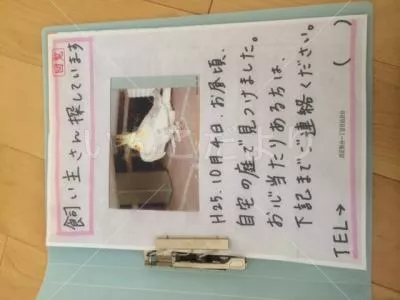 回覧
飼い主さん探しています
H25.10月4日.お昼頃、
自宅の庭で見つけました。
お心当たりある方は
下記までご連絡ください。
TEL→ ( )